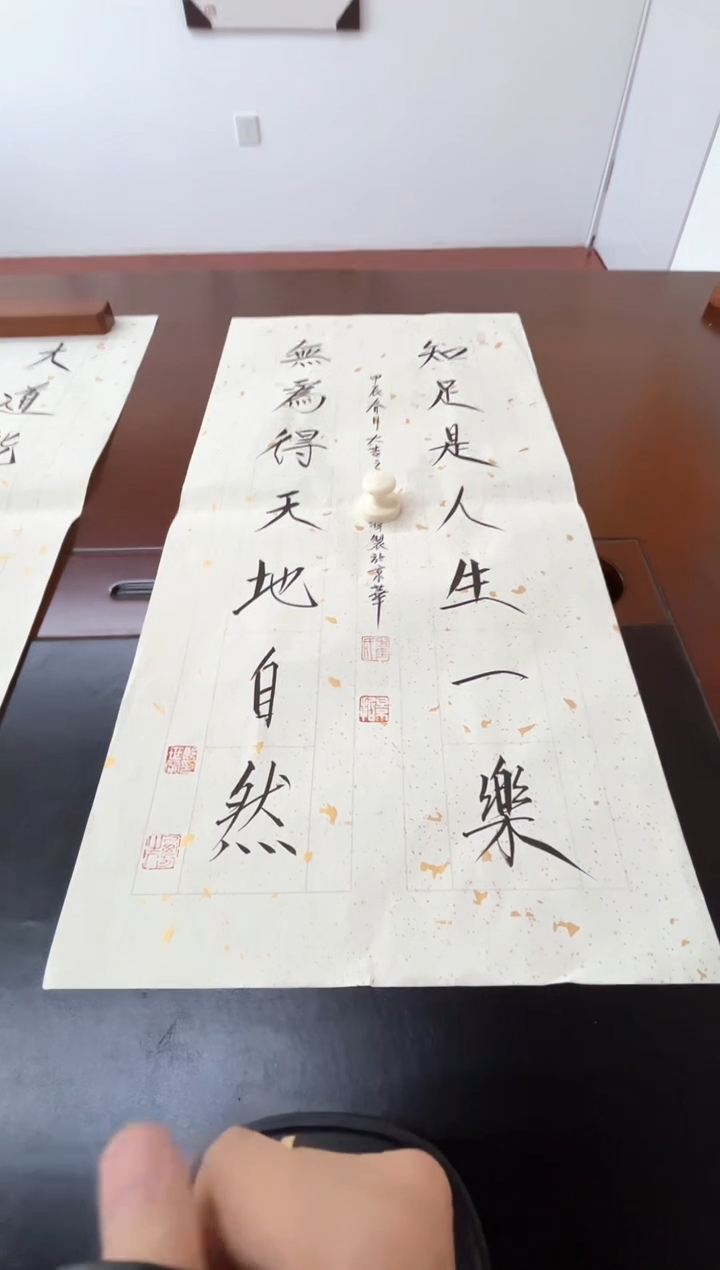 知足是人生一樂
甲辰
大吉
製於京華
無為得天地自然
大道